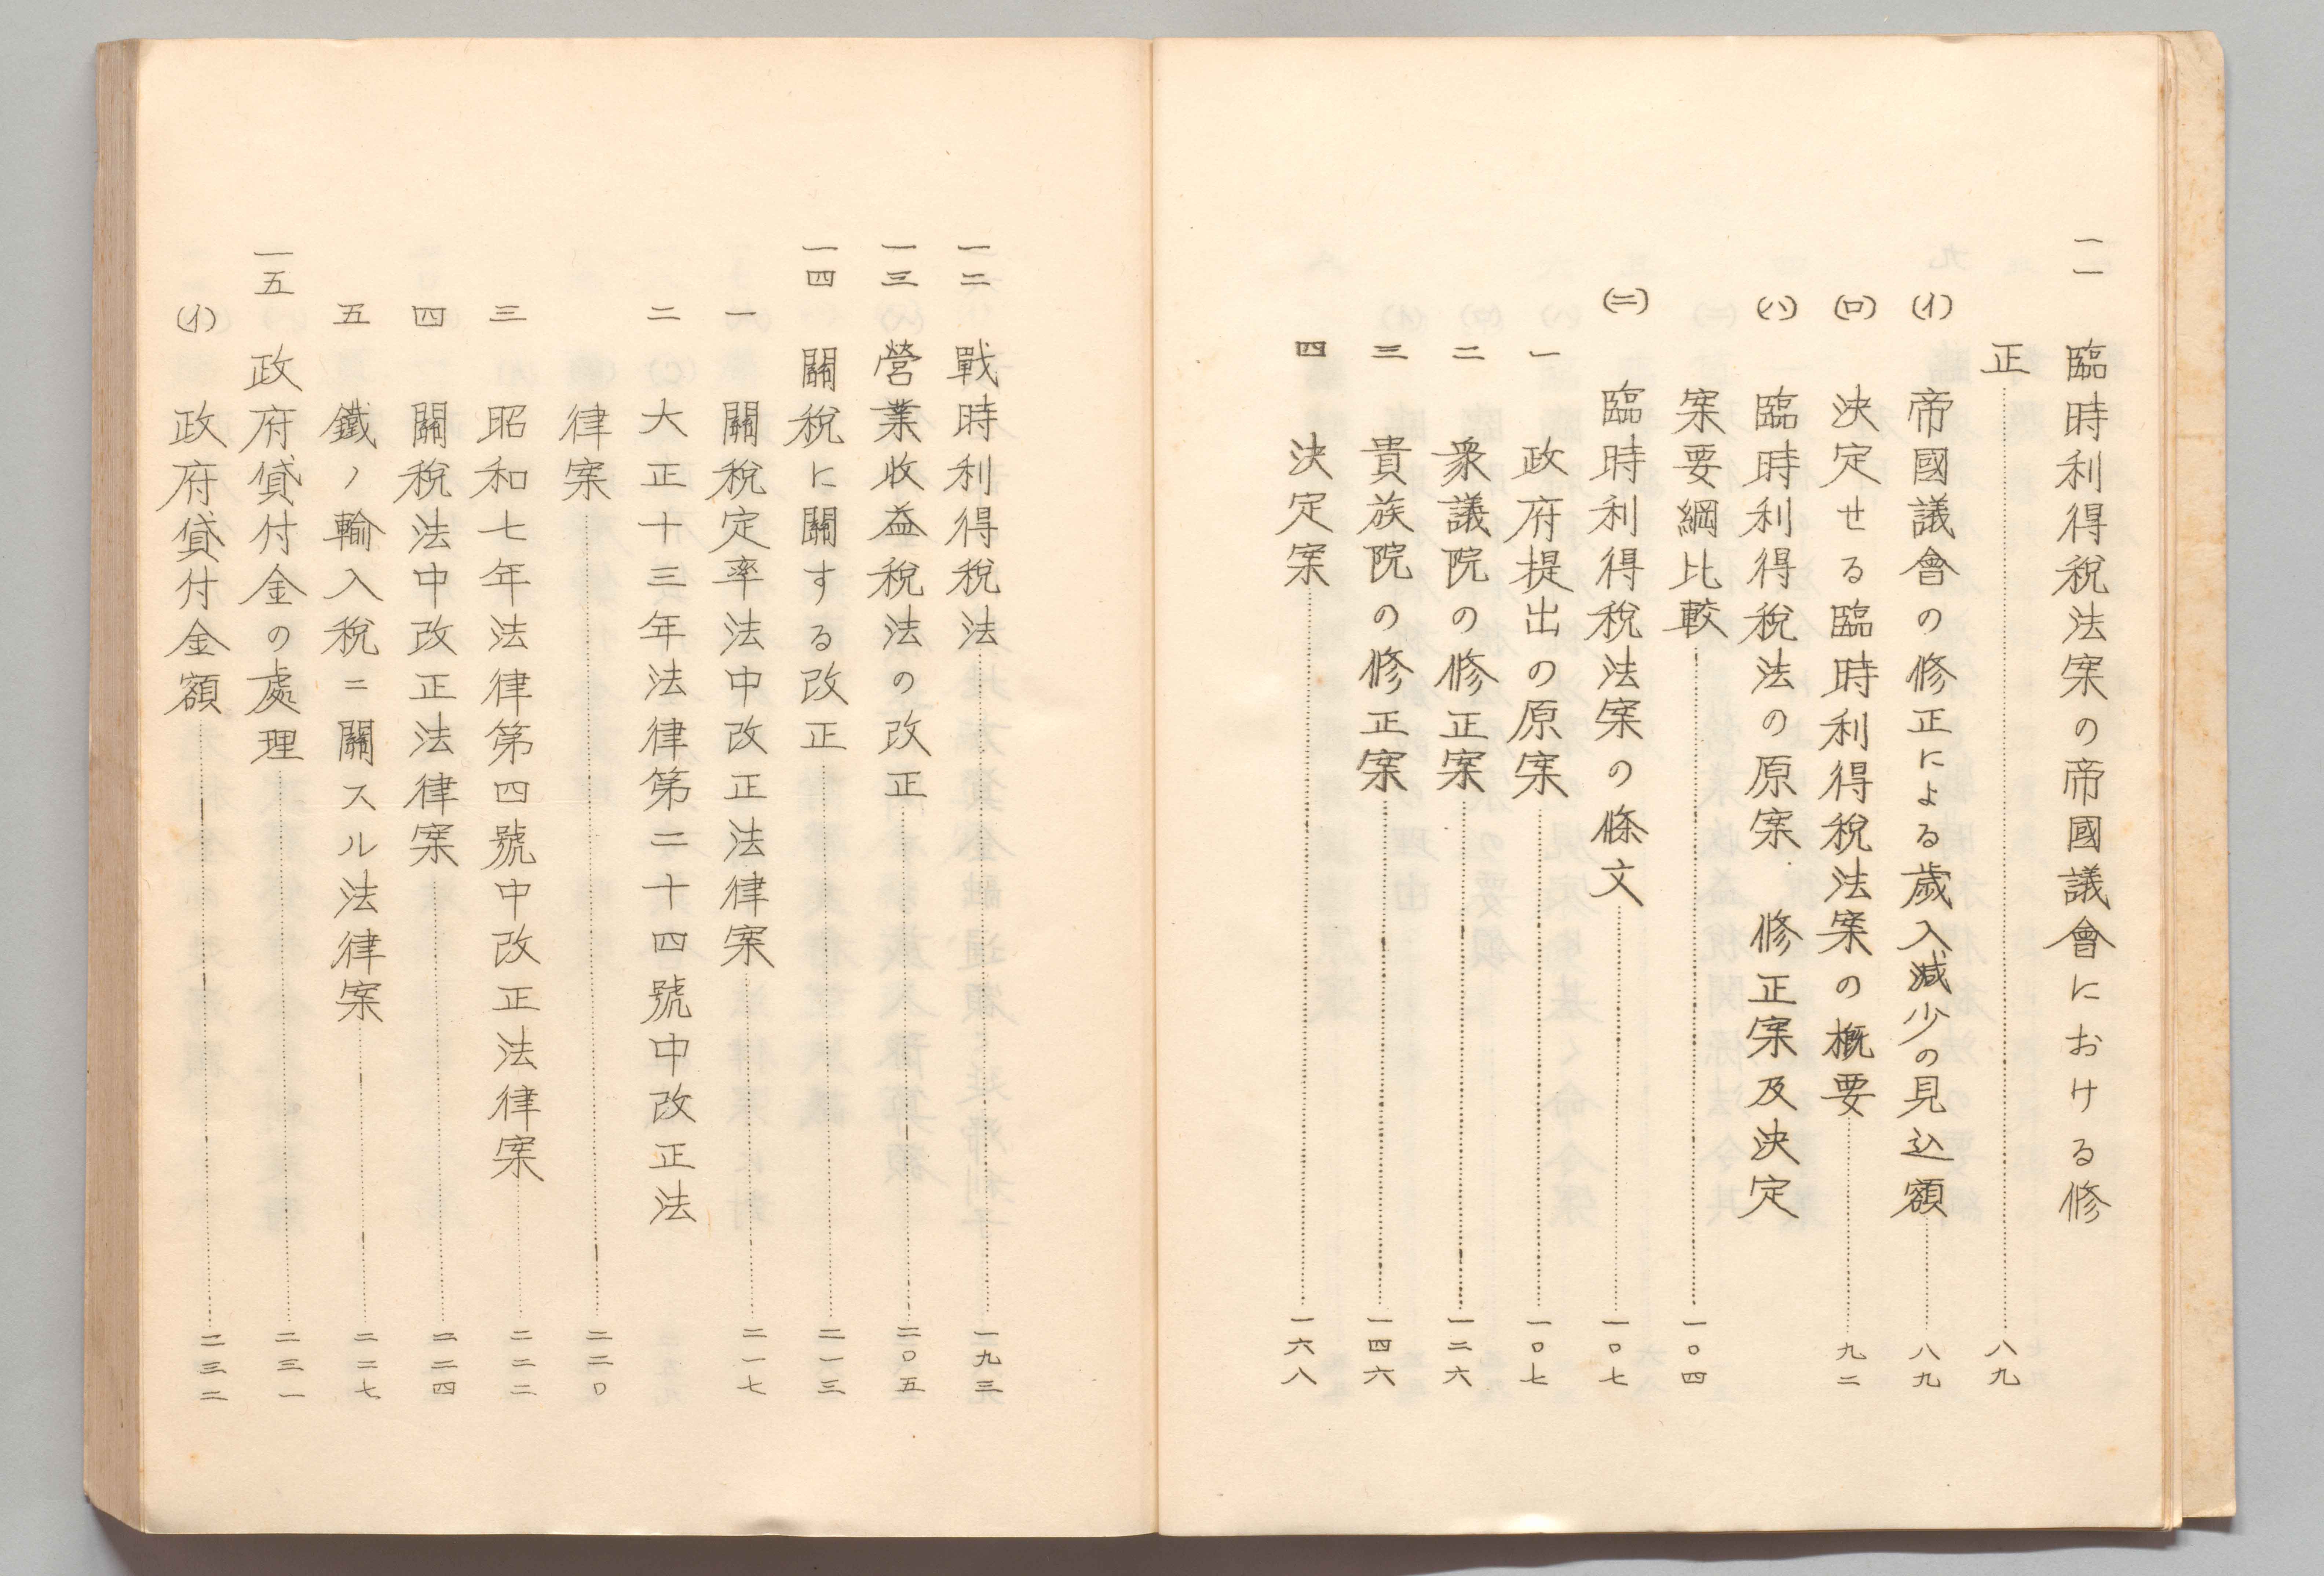 一一 臨時利得税法案の帝國議會における修
正……八九
(イ) 帝國議會の修正による歳入減少の見込額……八九
(ロ) 決定せる臨時利得税法案の概要……九二
(ハ) 臨時利得税法の原案 修正案及決定
案要綱比較……一〇四
(ニ) 臨時利得税法案の條文……一〇七
一 政府提出の原案……一〇七
二 衆議院の修正案……一二六
三 貴族院の修正案……一四六
四 決定案……一六八
一二 戰時利得税法……一九三
一三 營業收益税法の改正……二〇五
一四 關税に關する改正……二一三
一 關税定率法中改正法律案……二一七
二 大正十三年法律第二十四號中改正法
律案……二二〇
三 昭和七年法律第四號中改正法律案……二二二
四 關税法中改正法律案……二二四
五 鐵ノ輸入税ニ關スル法律案……二二七
一五 政府貸付金の處理……二三一
(イ) 政府貸付金額……二三二